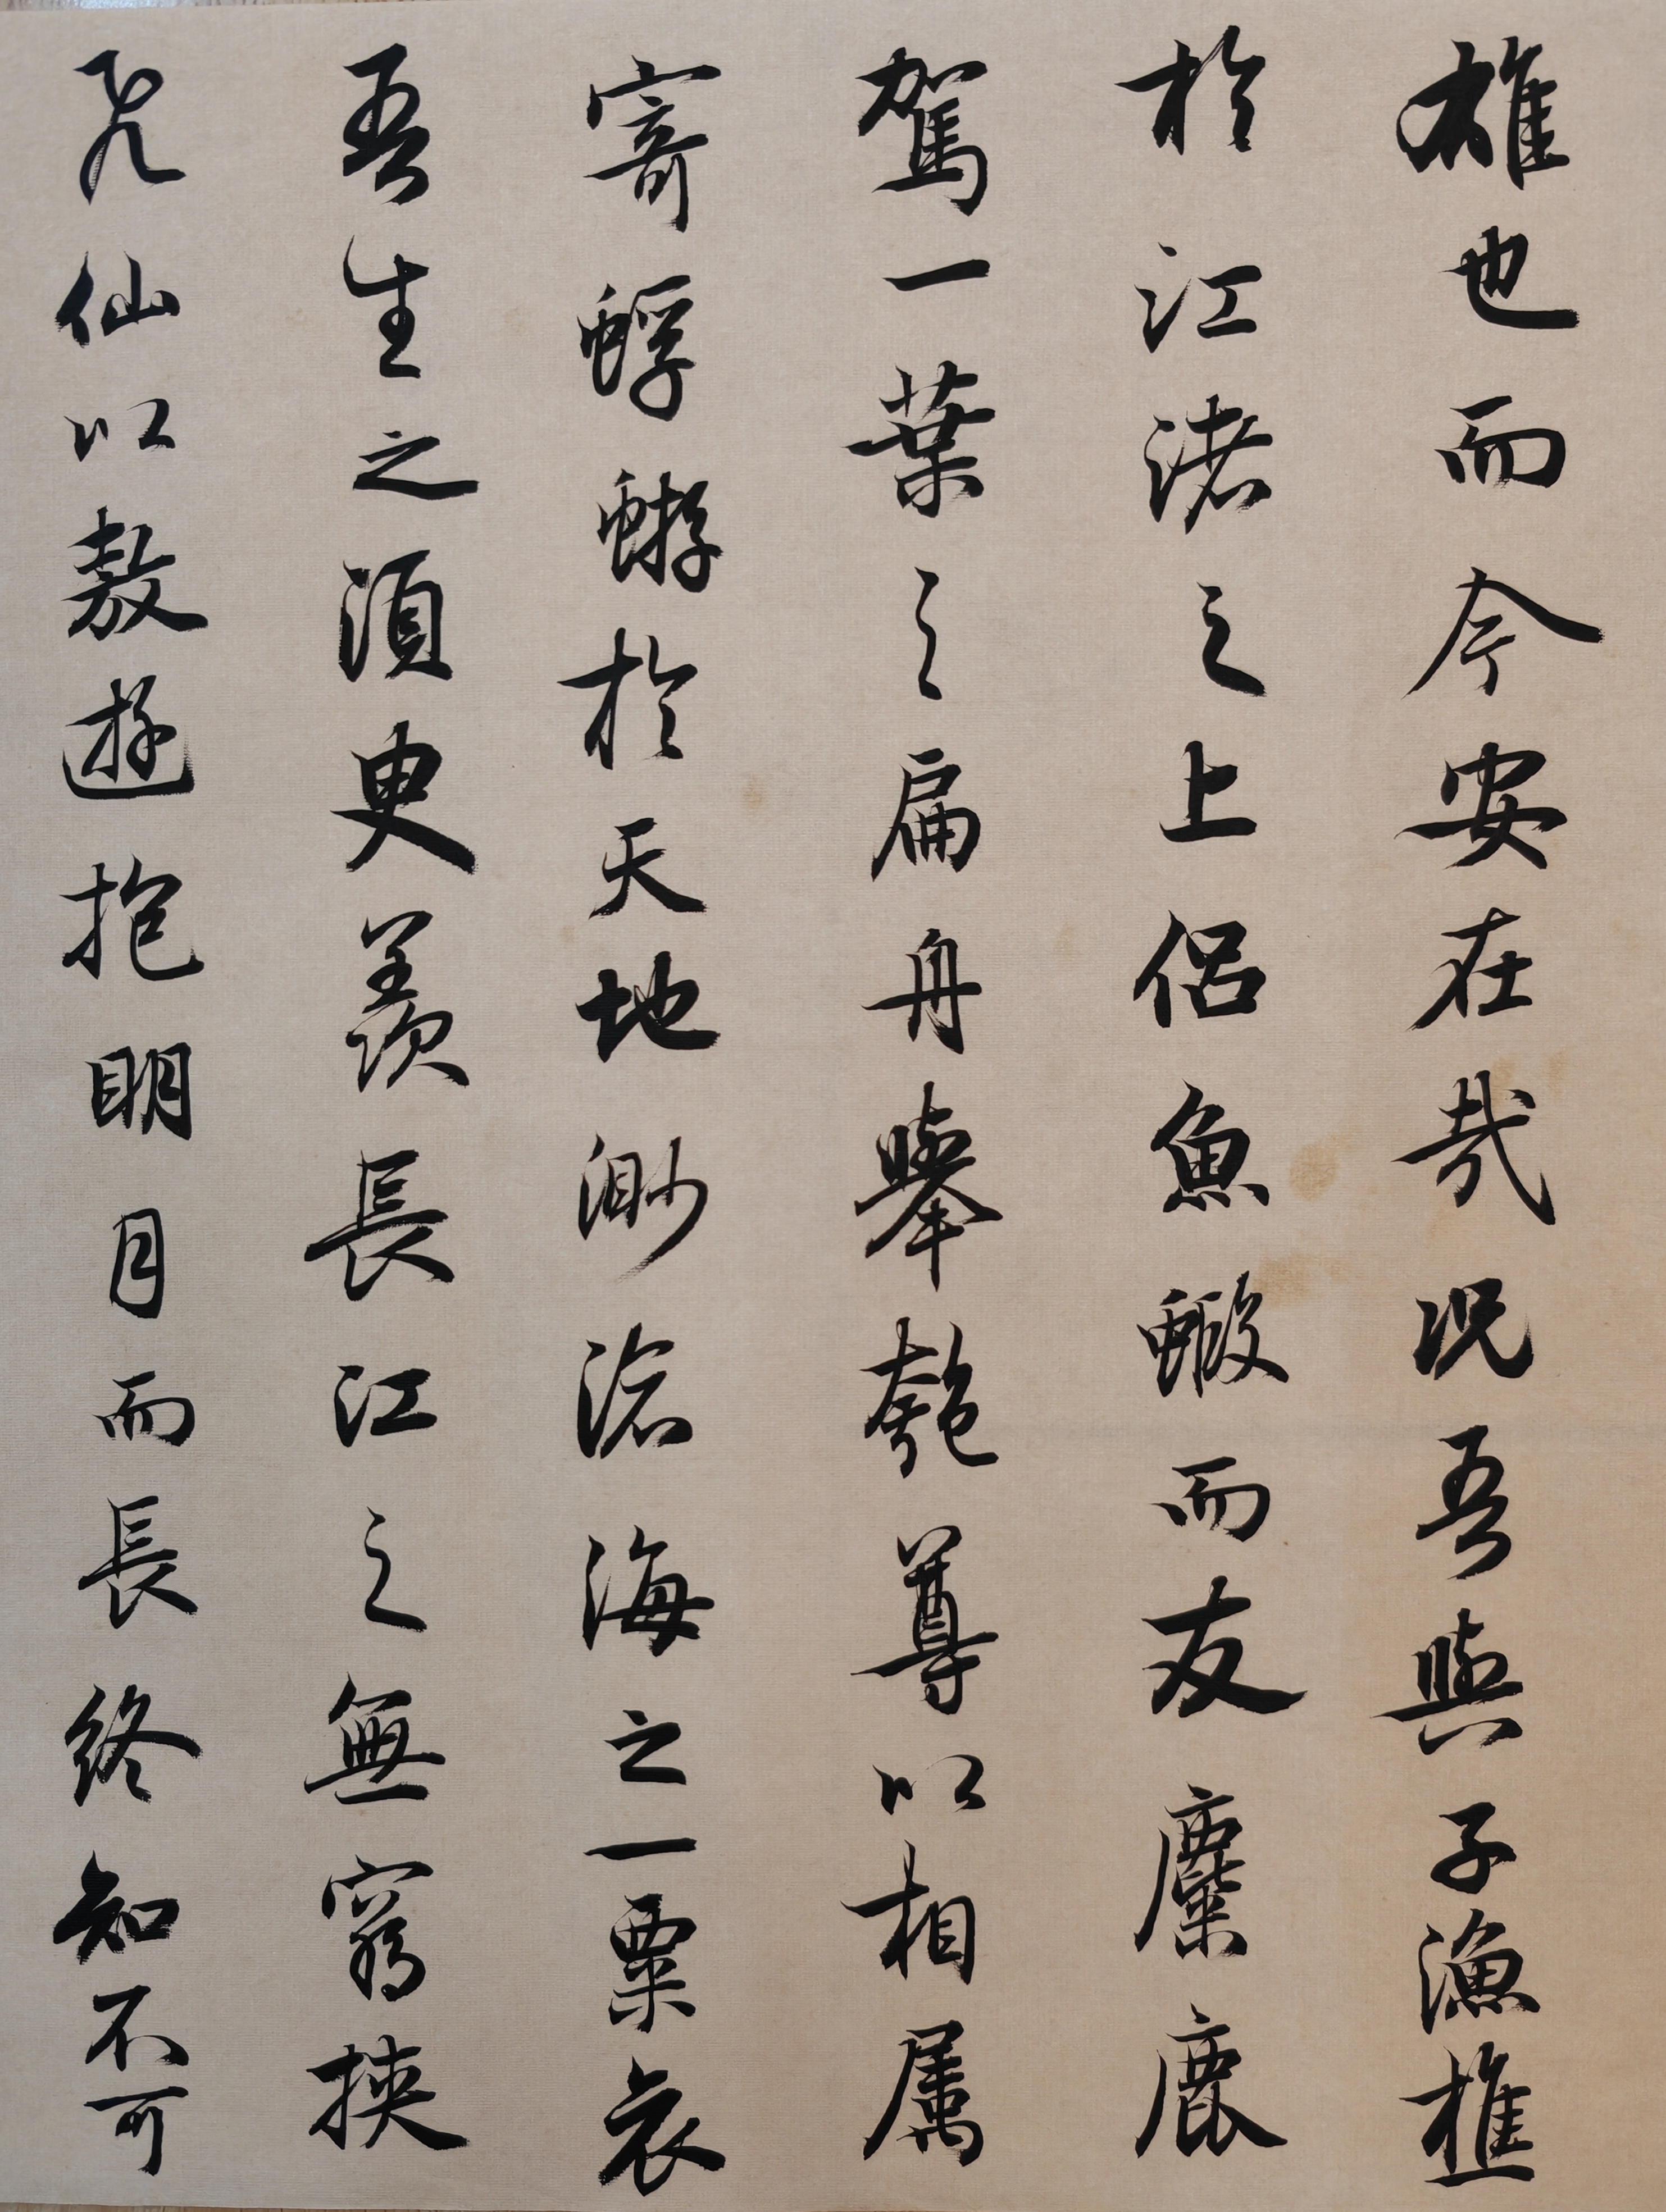 雄也而今安在哉況吾與子漁樵
於江渚之上侶魚蝦而友麋鹿
駕一葉之扁舟舉匏尊以相属
寄蜉蝣於天地渺滄海之一粟哀
吾生之須臾羡長江之無窮挾
飛仙以敖遊抱明月而長終知不可